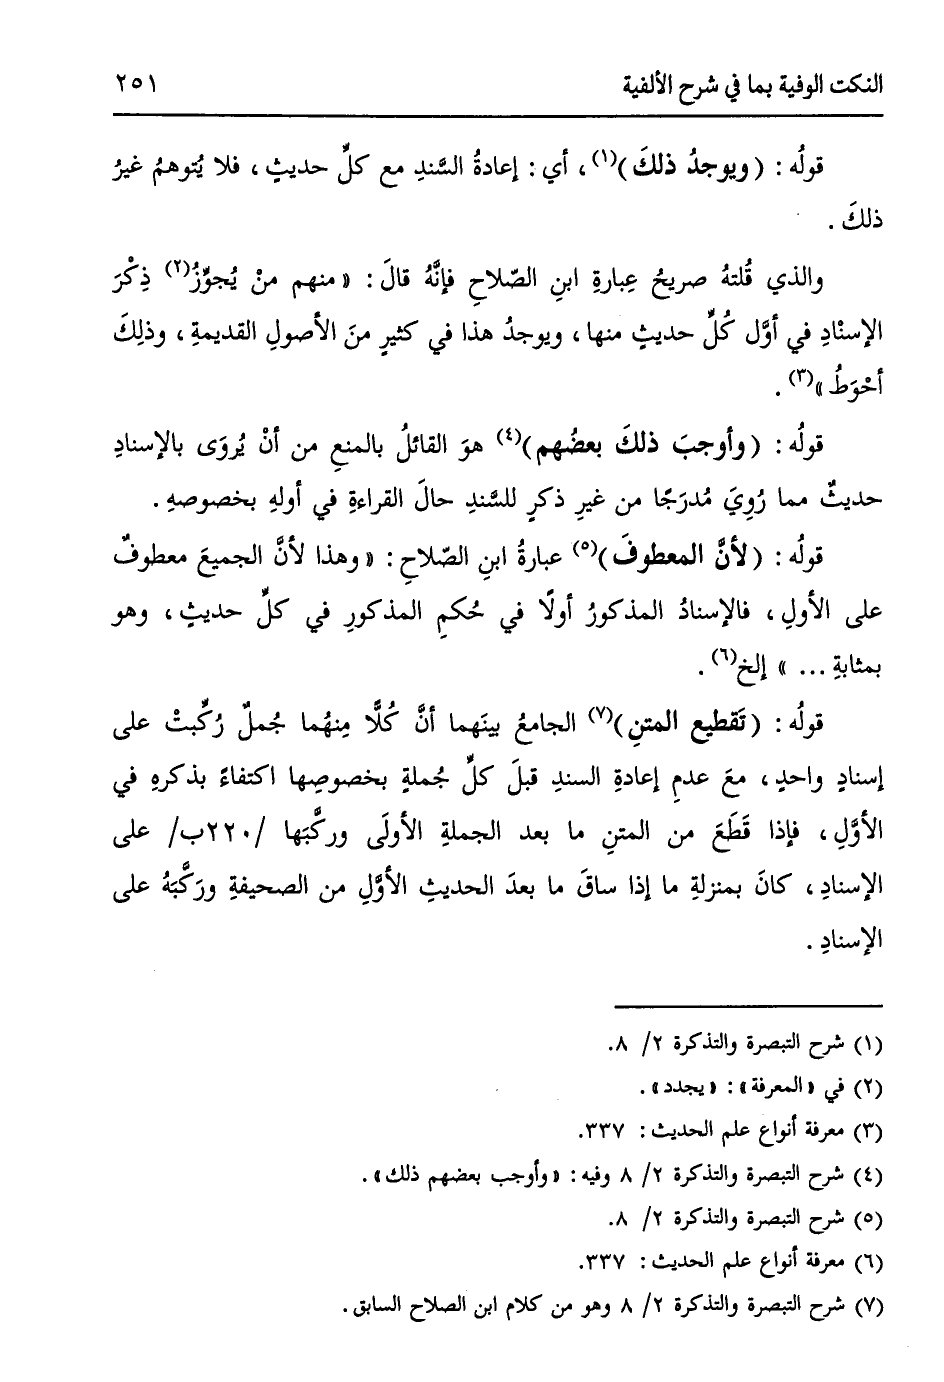 النكت الوفية بما في شرح الألفية ٢٥١
قولُه : (ويوجدُ ذلكَ)(١)، أي : إعادةُ السَّندِ مع كلِّ حديثٍ ، فلا يُتوهمُ غيرُ
ذلكَ .
والذي قُلتهُ صريحُ عِبارةِ ابنِ الصّلاحِ فإنَّهُ قالَ : « منهم منْ يُجوِّزُ(٢) ذِكْرَ
الإسنْادِ في أوَّل كُلِّ حديثٍ منها ، ويوجدُ هذا في كثيرٍ منَ الأصولِ القديمةِ ، وذلِكَ
أحْوَطُ »(٣) .
قولُه : (وأوجبَ ذلكَ بعضُهم)(٤) هوَ القائلُ بالمنعِ من أنْ يُروَى بالإسنادِ
حديثٌ مما رُوِيَ مُدرَجًا من غيرِ ذكرٍ للسَّندِ حالَ القراءةِ في أولهِ بخصوصهِ .
قولُه : (لأنَّ المعطوفَ)(٥) عبارةُ ابنِ الصّلاحِ : « وهذا لأنَّ الجميعَ معطوفٌ
على الأولِ ، فالإسنادُ المذكورُ أولًا في حُكمِ المذكورِ في كلِّ حديثٍ ، وهو
بمثابةِ ... » إلخ(٦) .
قولُه : (تَقطيع المتنِ)(٧) الجامعُ بينَهما أنَّ كُلًّا مِنهُما جُملٌ رُكِّبتْ على
إسنادٍ واحدٍ ، معَ عدمِ إعادةِ السندِ قبلَ كلِّ جُملةٍ بخصوصِها اكتفاءً بذكرهِ في
الأوَّلِ ، فإذا قَطَعَ من المتنِ ما بعد الجملةِ الأولَى وركَّبَها /٢٢٠ب/ على
الإسنادِ ، كانَ بمنزلةِ ما إذا ساقَ ما بعدَ الحديثِ الأوَّلِ من الصحيفةِ ورَكَّبَهُ على
الإسنادِ .
(١) شرح التبصرة والتذكرة ٢/ ٨.
(٢) في « المعرفة » : « يجدد » .
(٣) معرفة أنواع علم الحديث : ٣٣٧.
(٤) شرح التبصرة والتذكرة ٢/ ٨ وفيه : « وأوجب بعضهم ذلك » .
(٥) شرح التبصرة والتذكرة ٢/ ٨.
(٦) معرفة أنواع علم الحديث : ٣٣٧.
(٧) شرح التبصرة والتذكرة ٢/ ٨ وهو من كلام ابن الصلاح السابق .